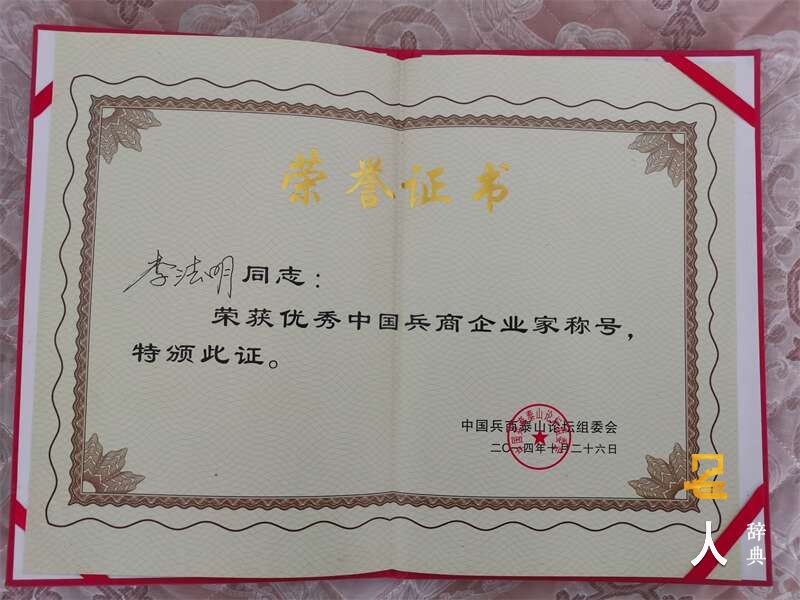 荣誉证书
李法明同志：
荣获优秀中国兵商企业家称号，
特颁此证。
中国兵商泰山论坛组委会
二〇一四年十月二十六日
名人辞典